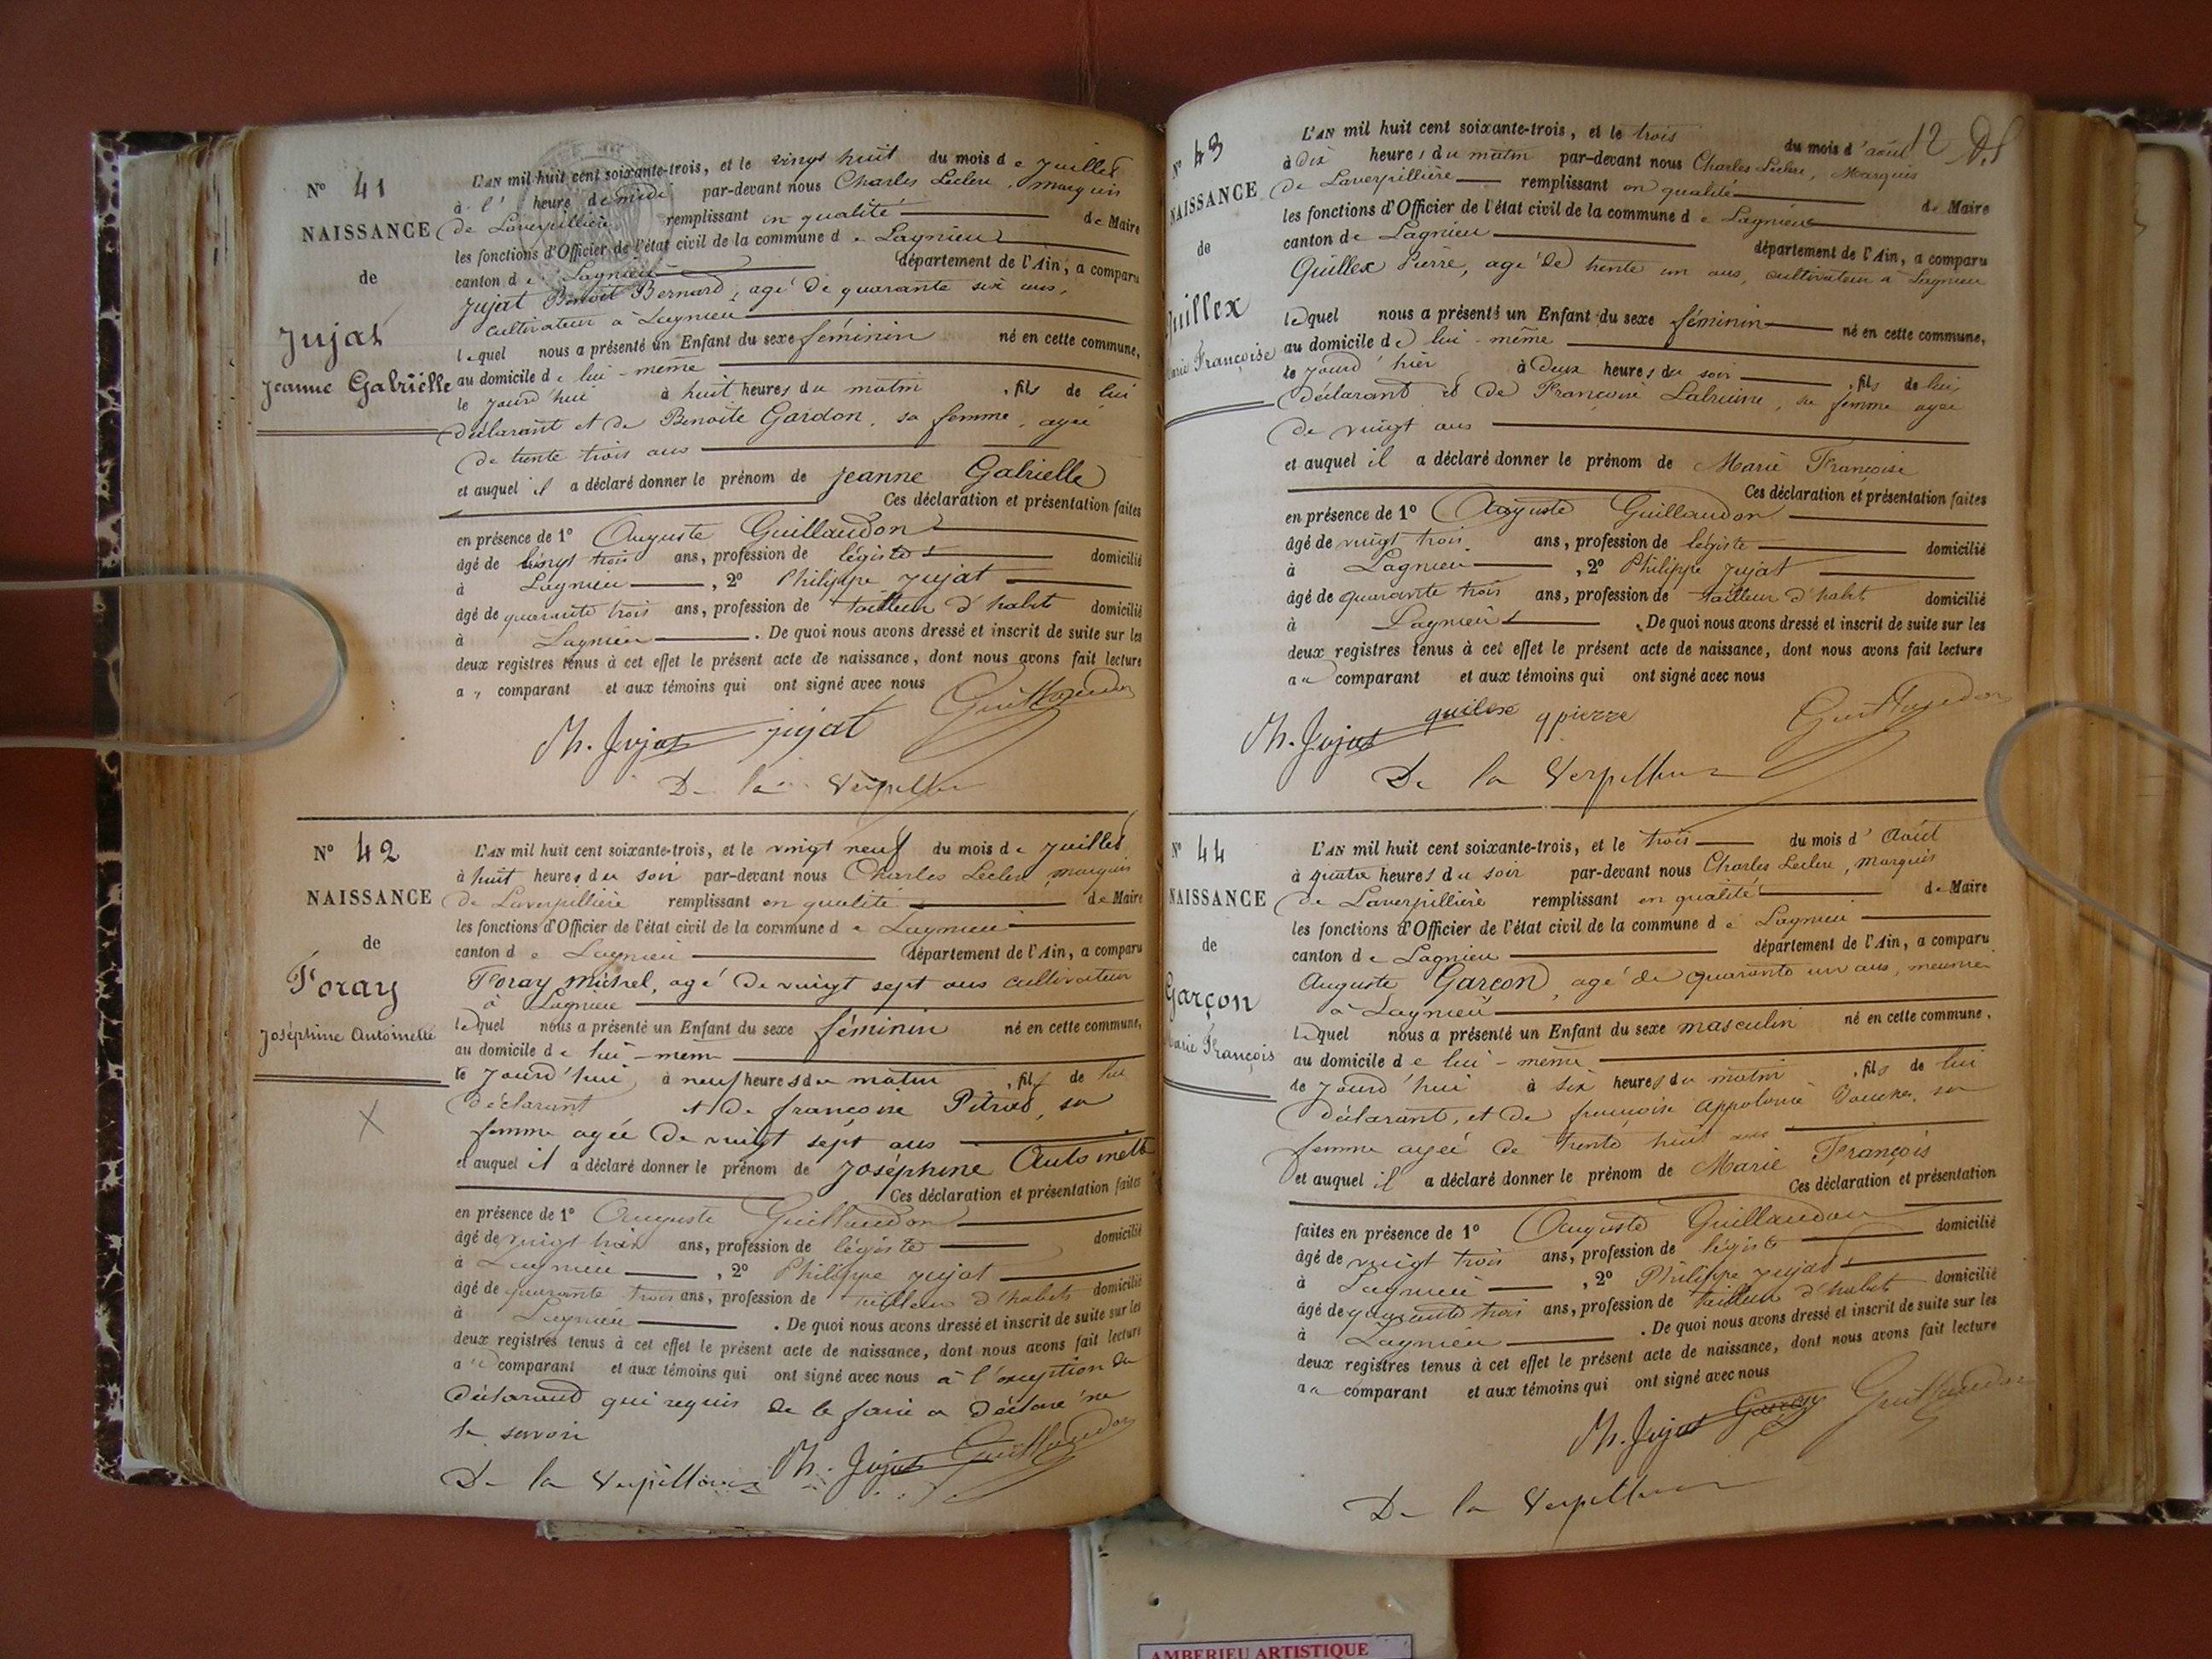 N° 41
NAISSANCE
de
Jujat
Jeanne Gabriëlle
L'AN mil huit cent soixante-trois, et le vingt huit du mois de Juillet
à l' heure de midi par-devant nous Charles Leclerc, Marquis
de Laverpillière remplissant en qualité de Maire
les fonctions d'Officier de l'état civil de la commune de Lagnieu
canton de Lagnieu département de l'Ain, a comparu
Jujat Benoit Bernard, agé de quarante six ans,
cultivateur à Lagnieu
lequel nous a présenté un Enfant du sexe féminin né en cette commune,
au domicile de lui-même
le jourd'hui à huit heures du matin, fils de lui
déclarant et de Benoite Gardon, sa femme, agée
de trente trois ans
et auquel il a déclaré donner le prénom de Jeanne Gabrielle
Ces déclaration et présentation faites
en présence de 1° Auguste Guillaudon
âgé de vingt trois ans, profession de légiste domicilié
à Lagnieu, 2° Philippe Jujat
âgé de quarante trois ans, profession de tailleur d'habits domicilié
à Lagnieu. De quoi nous avons dressé et inscrit de suite sur les
deux registres tenus à cet effet le présent acte de naissance, dont nous avons fait lecture
a comparant et aux témoins qui ont signé avec nous
Guillaudon
Ph. Jujat jujat
De la Verpillière
N° 42
NAISSANCE
de
Foray
Joséphine Antoinette
L'AN mil huit cent soixante-trois, et le vingt neuf du mois de Juillet
à huit heures du soir par-devant nous Charles Leclerc, marquis
de Laverpillière remplissant en qualité de Maire
les fonctions d'Officier de l'état civil de la commune de Lagnieu
canton de Lagnieu département de l'Ain, a comparu
Foray Michel, agé de vingt sept ans cultivateur
à Lagnieu
lequel nous a présenté un Enfant du sexe féminin né en cette commune,
au domicile de lui-même
le jourd'hui à neuf heures du matin, fils de lui
déclarant et de françoise, sa
femme agée de vingt sept ans
et auquel il a déclaré donner le prénom de Joséphine Antoinette
Ces déclaration et présentation faites
en présence de 1° Auguste Guillaudon
âgé de vingt trois ans, profession de légiste domicilié
à Lagnieu, 2° Philippe Jujat
âgé de quarante trois ans, profession de tailleur d'habits domicilié
à Lagnieu. De quoi nous avons dressé et inscrit de suite sur les
deux registres tenus à cet effet le présent acte de naissance, dont nous avons fait lecture
au comparant et aux témoins qui ont signé avec nous à l'exception du
déclarant qui requis de le faire a déclaré ne
le savoir
De la Verpillière Ph. Jujat Guillaudon
12
N° 43
NAISSANCE
de
Guillex
Marie Françoise
L'AN mil huit cent soixante-trois, et le trois du mois d'août
à dix heures du matin par-devant nous Charles Leclerc, Marquis
de Laverpillière remplissant en qualité de Maire
les fonctions d'Officier de l'état civil de la commune de Lagnieu
canton de Lagnieu département de l'Ain, a comparu
Guillex Pierre, agé de trente un ans, cultivateur à Lagnieu
lequel nous a présenté un Enfant du sexe féminin né en cette commune,
au domicile de lui-même
le jourd'hier à deux heures du soir, fils de lui
déclarant et de Françoise, sa femme agée
de vingt ans
et auquel il a déclaré donner le prénom de Marie Françoise
Ces déclaration et présentation faites
en présence de 1° Auguste Guillaudon
âgé de vingt trois ans, profession de légiste domicilié
à Lagnieu, 2° Philippe Jujat
âgé de quarante trois ans, profession de tailleur d'habits domicilié
à Lagnieu. De quoi nous avons dressé et inscrit de suite sur les
deux registres tenus à cet effet le présent acte de naissance, dont nous avons fait lecture
au comparant et aux témoins qui ont signé avec nous
Ph. Jujat guilex pierre Guillaudon
De la Verpillière
N° 44
NAISSANCE
de
Garçon
Marie François
L'AN mil huit cent soixante-trois, et le trois du mois d'Août
à quatre heures du soir par-devant nous Charles Leclerc, Marquis
de Laverpillière remplissant en qualité de Maire
les fonctions d'Officier de l'état civil de la commune de Lagnieu
canton de Lagnieu département de l'Ain, a comparu
Auguste Garçon, agé de quarante un ans, meunier
à Lagnieu
lequel nous a présenté un Enfant du sexe masculin né en cette commune,
au domicile de lui-même
le jourd'hui à six heures du matin, fils de lui
déclarant, et de françoise Appolonie, sa
femme agée de trente huit ans
et auquel il a déclaré donner le prénom de Marie François
Ces déclaration et présentation
faites en présence de 1° Auguste Guillaudon domicilié
âgé de vingt trois ans, profession de légiste
à Lagnieu, 2° Philippe Jujat
âgé de quarante trois ans, profession de tailleur d'habits domicilié
à Lagnieu. De quoi nous avons dressé et inscrit de suite sur les
deux registres tenus à cet effet le présent acte de naissance, dont nous avons fait lecture
au comparant et aux témoins qui ont signé avec nous
Ph. Jujat Garçon Guillaudon
De la Verpillière
AMBERIEU ARTISTIQUE